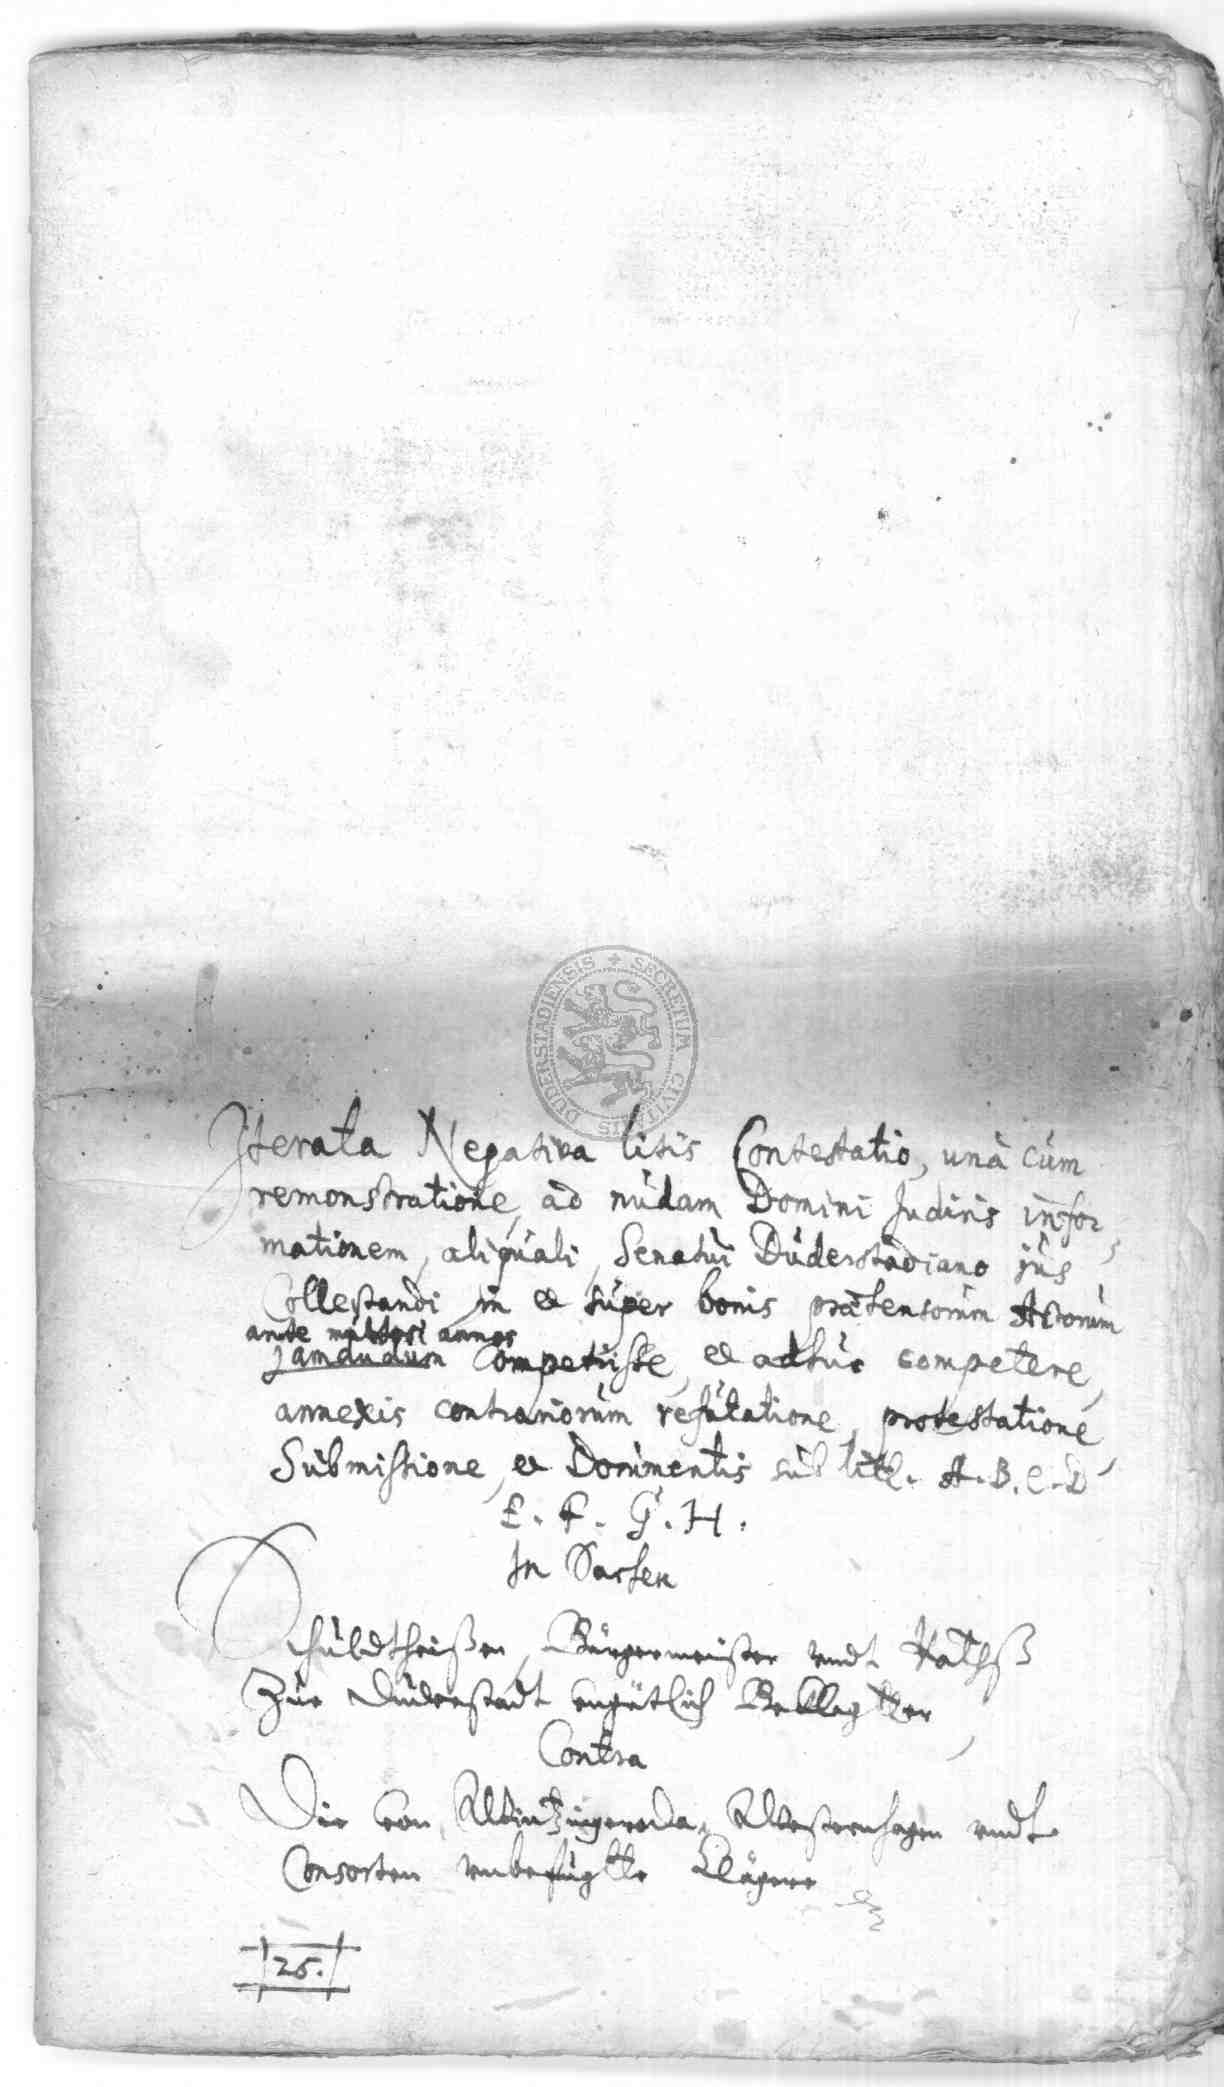 SECRETUM CIVITATIS DUDERSTADIENSIS
Iterata Negativa litis Contestatio, unà cùm
remonstratione, ad nùdam Domini Judicis infor,
mationem, aliquali, Senatui Dùderstadiano jùs
Collectandi in et sùper bonis prætensorùm Actorùm
ante multos annos
jamdudum Competiisse, et adhùc competere,
annexis contrariorùm refùtatione, protestatione,
Sùbmissione, et Documentis sùb litt. A. B. C. D
E. F. G. H.
In Sachen
Schùldtheißen, Bürgermeister undt Rathß
Zùe Dùderstadt Beklagtter,
Contra
Die von Wintzingeroda, Westernhagen undt
Consorten unbefùgtte Klägere
25.